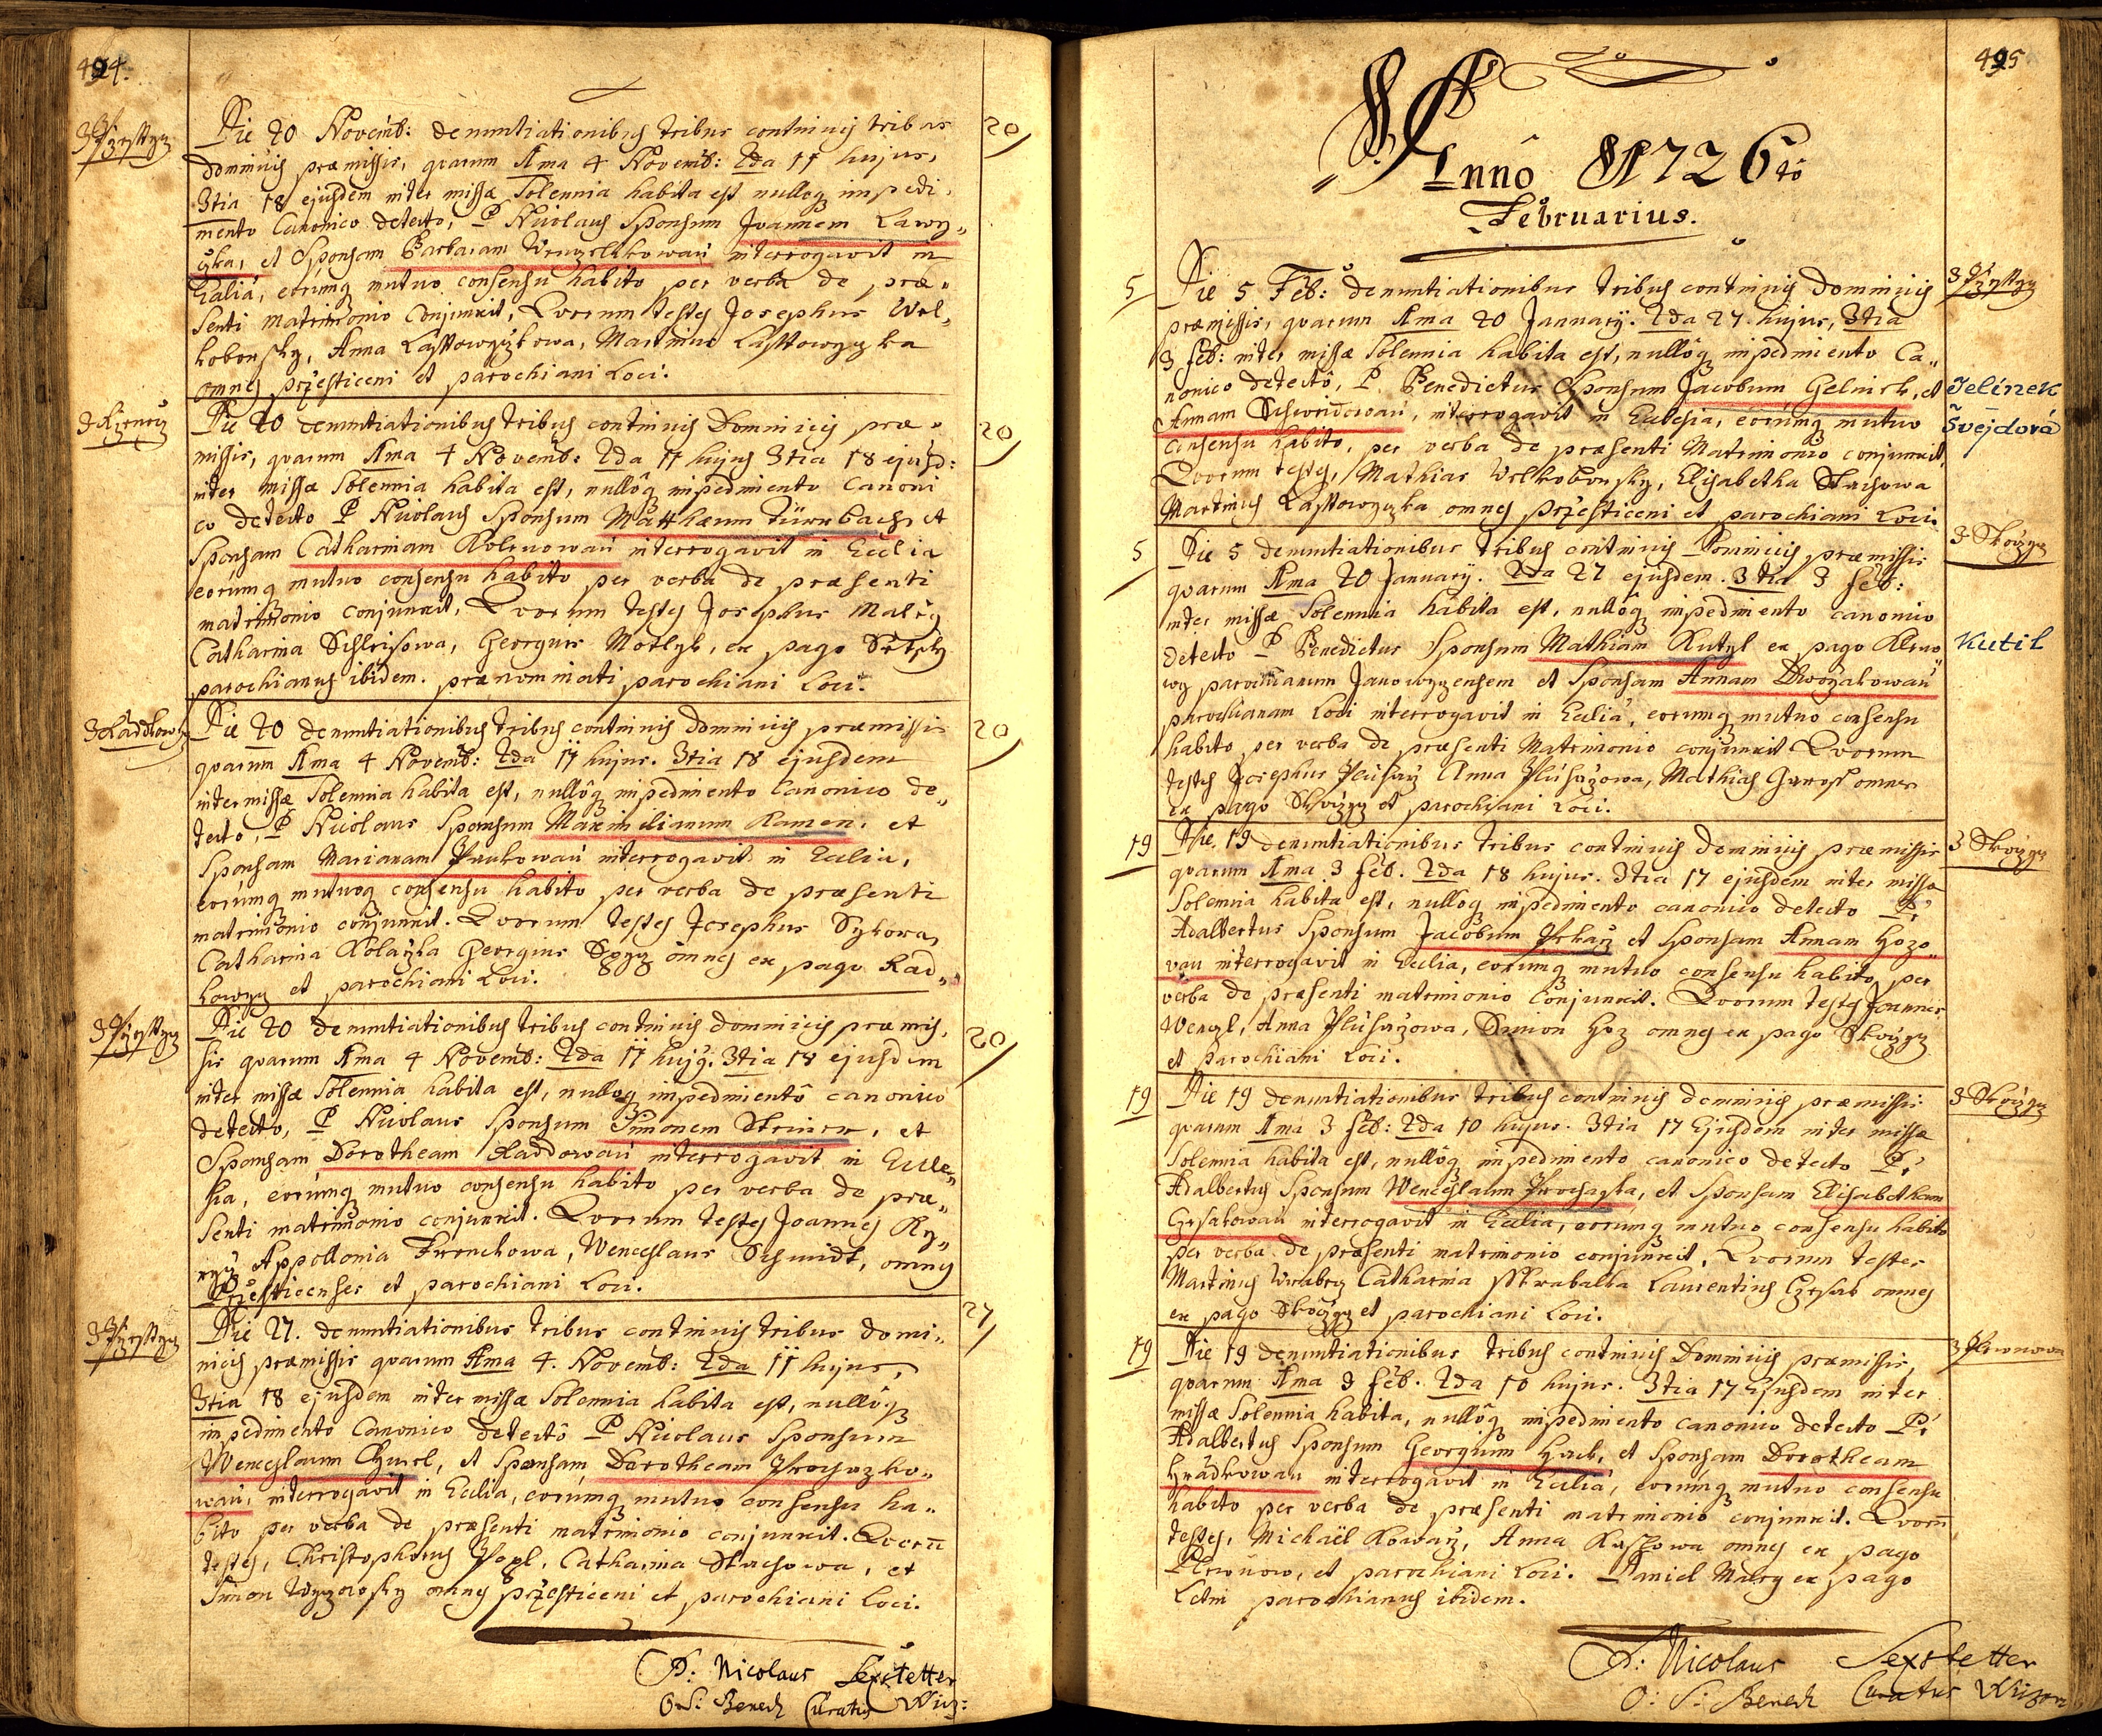 494.
Die 20 Novemb: denuntiationibus tribus continuis tribus
20
Dominicis præmissis, quarum 1ma 4 Novemb: 2da 11 hujus,
3tia 18 ejusdem inter missæ Solennia habita est nulloq impedi,
mento Canonico detecto, P Nicolaus Sponsum Joannem Lawy„
czka, et Sponsam Barbaram interrogavit in
Ecclia, eorumq mutuo consensu habito per verba de præ„
senti matrimonio Conjunxit, Quorum testes Josephus Wel„
kobousky, Anna Lasstowyczkowa, Martinus Lasstowyczka
omnes przesticeni et parochiani Loci.
Die 20 denuntiationibus tribus continuis Dominicis præ„
20
missis, quarum 1ma 4 Novemb: 2da 11 hujus 3tia 18 ejusd:
inter missæ Solennia habita est, nullôq impedimento Canoni
co detecto P Nicolaus Sponsum Matthæum Türnbach et
Sponsam Catharinam interrogavit in Ecclia
eorumq mutuo consensu habito per verba de præsenti
matrimonio conjunxit, Quorum testes Josephus Maly
Catharina Georgius Motlyk, ex pago
parochianus ibidem. prænominati parochiani Loci.
3 Radkowy
Die 20 denuntiationibus tribus continuis dominicis præmissis
20
quarum 1ma 4 Novemb: 2da 11 hujus. 3tia 18 ejusdem
inter missæ Solennia habita est, nullôq impedimento Canonico de„
tecto, P Nicolaus Sponsum Maximilianum Kamen, et
Sponsam Marianam interrogavit in Ecclia,
eorumq mutuoq consensu habito per verba de præsenti
matrimonio conjunxit. Quorum testes Josephus Sykora,
Catharina Kolarzka Georgius omnes ex pago Rad„
kowyz et parochiani Loci.
Die 20 denuntiationibus tribus continuis dominicis præmis,
20
sis quarum 1ma 4 Novemb: 2da 11 hujq. 3tia 18 ejusdem
inter missæ Solennia habita est, nulloq impedimentô canonico
detecto, P Nicolaus Sponsum Simonem Steiner, et
Sponsam Dorotheam interrogavit in Eccle„
sia, eorumq mutuo consensu habito per verba de præ„
senti matrimonio conjunxit. Quorum testes Joannes Ry„
Appollonia Wenceslaus Schmidt, omnes
Przesticenses et parochiani Loci.
Die 27. denuntiationibus tribus continuis tribus domi„
27
nicis præmissis quarum 1ma 4. Novemb: 2da 11 hujus,
3tia 18 ejusdem inter missæ Solennia habita est, nullôq
impedimento Canonico detectô P Nicolaus Sponsum
Wenceslaum et Sponsam Dorotheam Prochazko„
wau, interrogavit in Ecclia, eorumq mutuo consensu ha„
bito per verba de præsenti matrimonio conjunxit. Quorū
testes, Christophorus Catharina Stachowa, et
Simon omnes przesticeni et parochiani Loci.
P: Nicolaus Sexstetter
O: S: Bened Curatus Wiz:
495
Annô 1726tô
Februarius.
5
Die 5 Feb: denuntiationibus tribus continuis Dominicis
præmissis, quarum 1ma 20 Januarij. 2da 27 hujus, 3tia
3 feb: inter missæ Solennia habita est, nullôq impedimento Ca„
nonico detectô, P. Benedictus Sponsum Jacobum Gelinek, et
Jelínek
Annam interrogavit in Ecclesia, eorumq mutuo
Švejdová
consensu habito, per verba de præsenti Matrimonio conjunxit,
Quorum testes, Mathias Welkobousky, Elisabetha Stachowa
Martinus Lasstowyczka omnes przesticeni et parochiani Loci.
5
Die 5 denuntiationibus tribus continuis Dominicis præmissis
3 Skoczyz
quarum 1ma 20 Januarij. 2da 27 ejusdem. 3tia 3 feb:
inter missæ Solennia habita est, nullôq impedimento canonico
detecto P Benedictus Sponsum Mathiam Kutyl ex pago
Kutil
parochianum Janowyzensem et Sponsam Annam Dworzakowau
parochianam Loci interrogavit in Ecclia, eorumq mutuo consensu
habito per verba de præsenti Matrimonio conjunxit Quorum
testes Josephus Anna Mathias omnes
ex pago Skoczyz et parochiani Loci.
19
Die 19 denuntiationibus tribus continuis dominicis præmissis
3 Skoczyz
quarum 1ma 3 feb. 2da 18 hujus. 3tia 17 ejusdem inter missæ
Solennia habita est, nulloq impedimento canonico detecto P:
Adalbertus Sponsum Jacobum et Sponsam Annam Hozo„
vau interrogavit in Ecclia, eorumq mutuo consensu habito, per
verba de præsenti matrimonio Conjunxit. Quorum testes Joannes
Wenzl, Anna Simon Hoz omnes ex pago Skoczyz
et parochiani Loci.
19
Die 19 denuntiationibus tribus continuis dominicis præmissis
3 Skoczyz
quarum 1ma 3 feb: 2da 10 hujus. 3tia 17 Ejusdem inter missæ
Solennia habita est, nullôq impedimento canonico detecto P:
Adalbertus Sponsum Wenceslaum Prochazka, et Sponsam Elisabetham
interrogavit in Ecclia, eorumq mutuo consensu habito
per verba de præsenti matrimonio conjunxit, Quorum testes
Martinus Catharina Laurentius omnes
ex pago Skoczyz et parochiani Loci.
19
Die 19 denuntiationibus tribus continuis Dominicis præmissis,
quarum 1ma 3 feb. 2da 10 hujus. 3tia 17 Ejusdem inter
missæ Solennia habita, nullôq impedimento canonico detecto P:
Adalbertus Sponsum Georgium et Sponsam Dorotheam
Hradkowau interrogavit in Ecclia, eorumq mutuo consensu
habito per verba de præsenti matrimonio conjunxit. Quorū
testes, Michaël Kowarz, Anna omnes ex pago
et parochiani Loci. Daniel ex pago
Letin parochianus ibidem.
P: Nicolaus Sexstetter
O: S: Bened Curatus Wizen